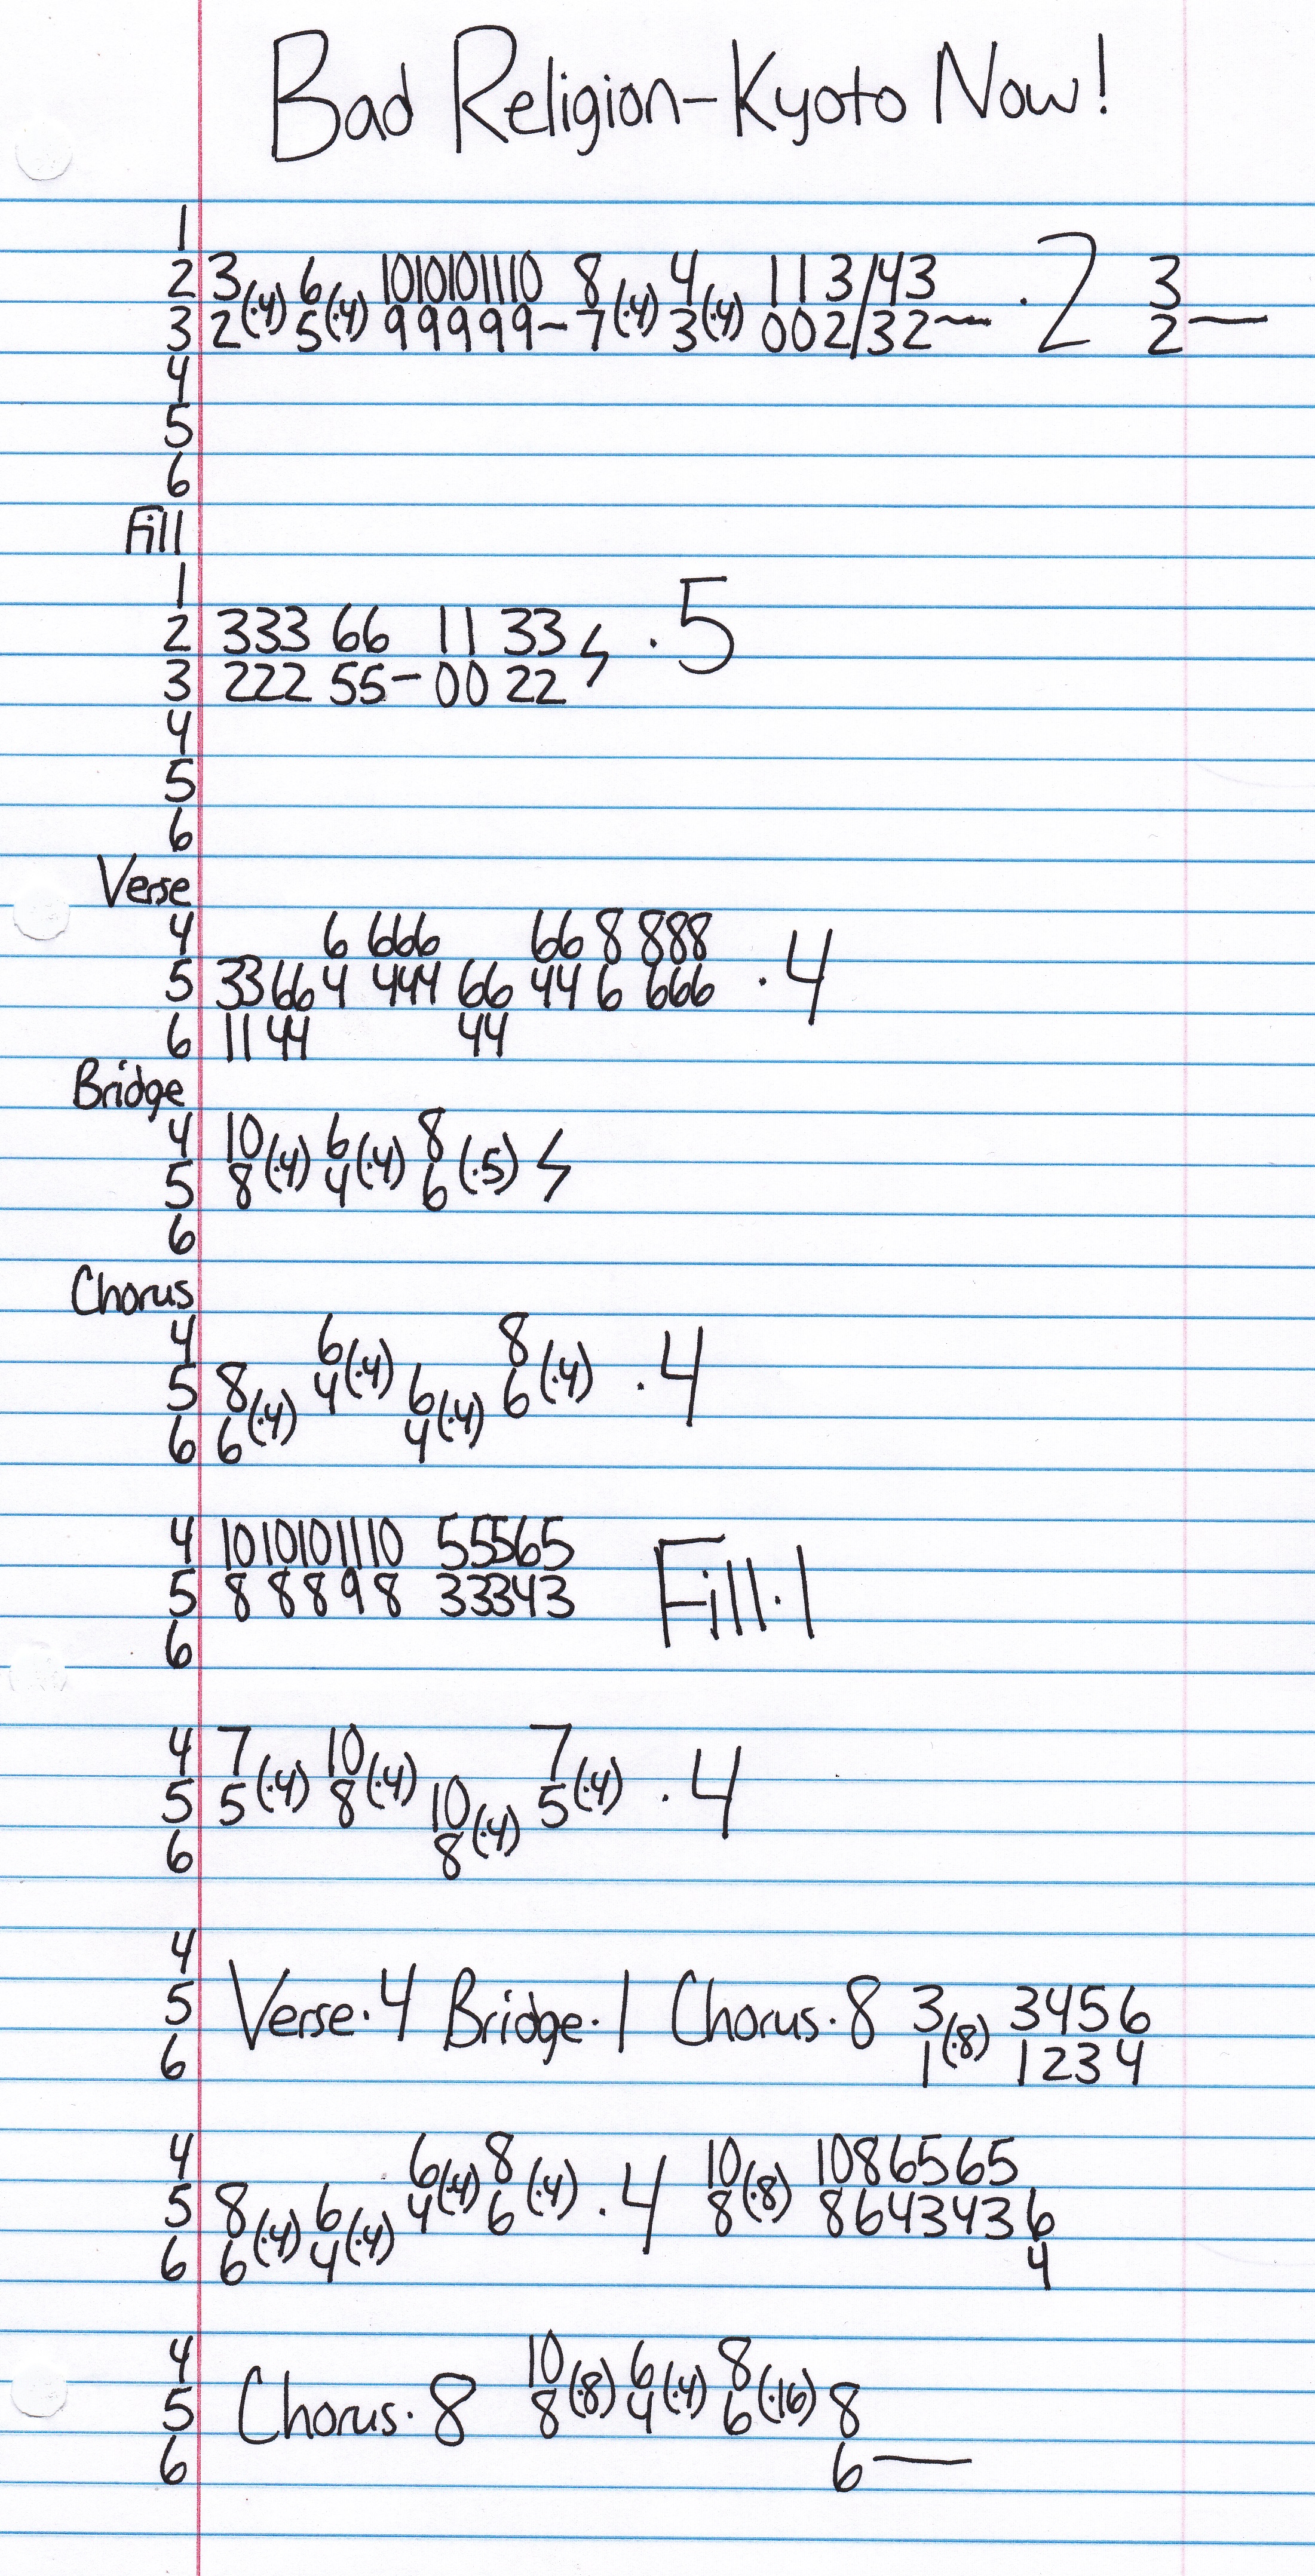 Bad Religion-Kyoto Now!
1
2 3(·4) 6(·4) 10101011 10 8(·4) 4(·4) 1 1 3/43 · 2 3
3 2 5 99999- 7 3 002/32~ 2—
4
5
6
Fill
1
2 333 66 11 33 ϟ · 5
3 222 55-00 22
4
5
6
Verse
4 6 666 66 8 888
5 33 66 4 444 66 44 6 666 · 4
6 11 44 44
Bridge
4 10(·4) 6(·4) 8(·5) ϟ
5 8 4 6
6
Chorus
4 6(·4) 8(·4) · 4
5 8(·4) 4 6(·4) 6
6 6 4
4 10 10 10 11 10 55565
5 8 8 8 9 8 33343 Fill·1
6
4 7(·4) 10(·4) 7(·4) · 4
5 5 8 10(·4) 5
6 8
4
5 Verse·4 Bridge·1 Chorus·8 3(·8) 3456
6 1 1234
4 6(·4) 8(·4) · 4 10(·8) 1086565
5 8(·4) 6(·4) 4 6 8 8643436
6 6 4 4
4 10(·8) 6(·4) 8(·16)
5 Chorus·8 8 4 6 8
6 6—